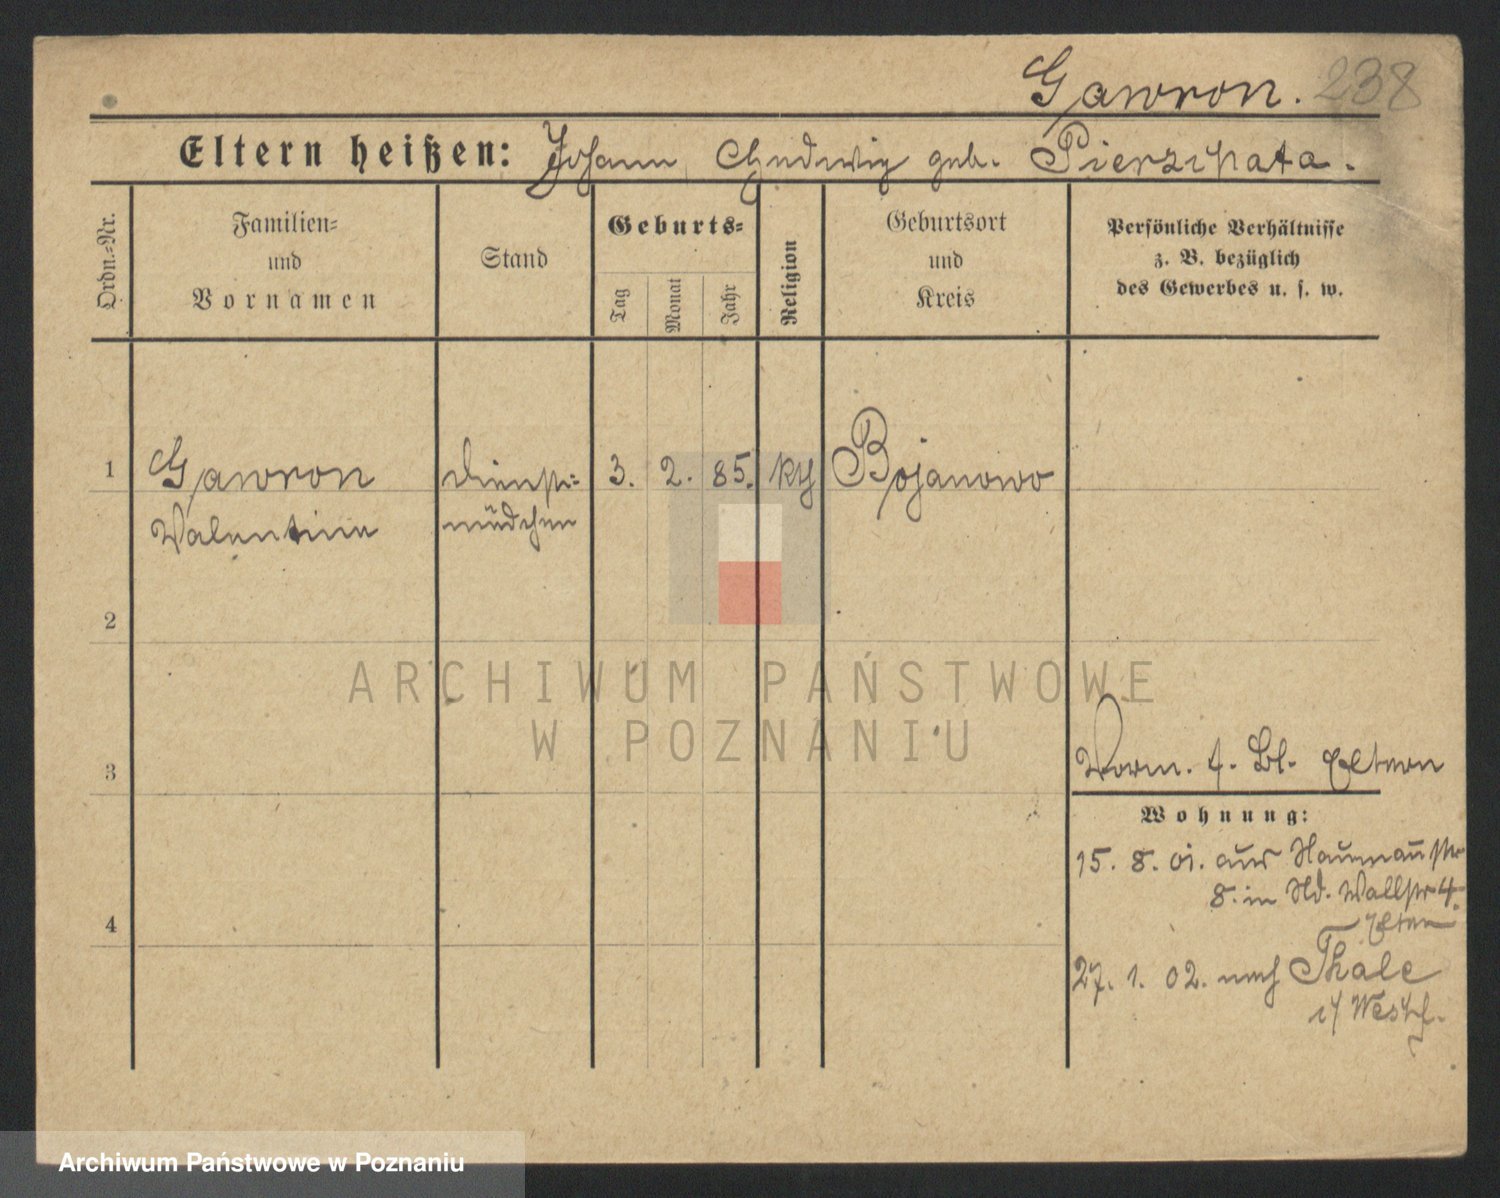 Gawron. 238
Eltern heißen: Johann, Hedwig geb. Pierzipata.
Ordn.=Nr.
Familien=
und
Vornamen
Stand
Geburts=
Tag
Monat
Jahr
Religion
Geburtsort
und
Kreis
Persönliche Verhältnisse
z. B. bezüglich
des Gewerbes u. s. w.
1 Gawron Dienst= 3. 2. 85. kth Bojanowo
Valentine mädchen
2
ARCHIWUM PAŃSTWOWE
W POZNANIU
3
Vorm. f. Bl. Eltern
Wohnung:
15. 8. 01. aus Naumannstr
8. in Nd. Wallstr 4.
Eltern
4
27. 1. 02. nach Thale
i/ Westf.
Archiwum Państwowe w Poznaniu